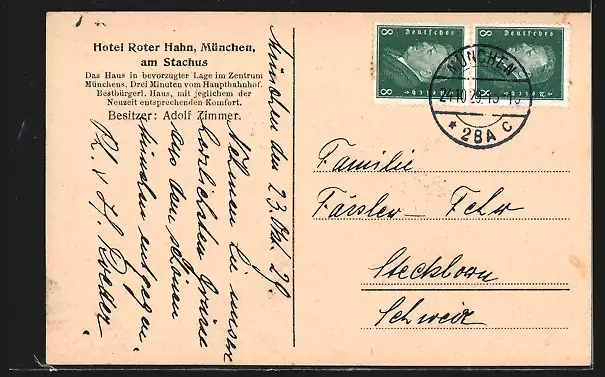 Hotel Roter Hahn, München,
am Stachus
Das Haus in bevorzugter Lage im Zentrum
Münchens. Drei Minuten vom Hauptbahnhof.
Bestbürgerl. Haus, mit jeglichem der
Neuzeit entsprechenden Komfort.
Besitzer: Adolf Zimmer.
München den 23. Okt. 29
Nehmen Sie unsere
herzlichsten Grüsse
aus dem schönen
München entgegen.
Deutsches Reich
8 8
Deutsches Reich
8 8
MÜNCHEN
* 28A C
Familie
Färsler - Fehr
Steckborn
Schweiz